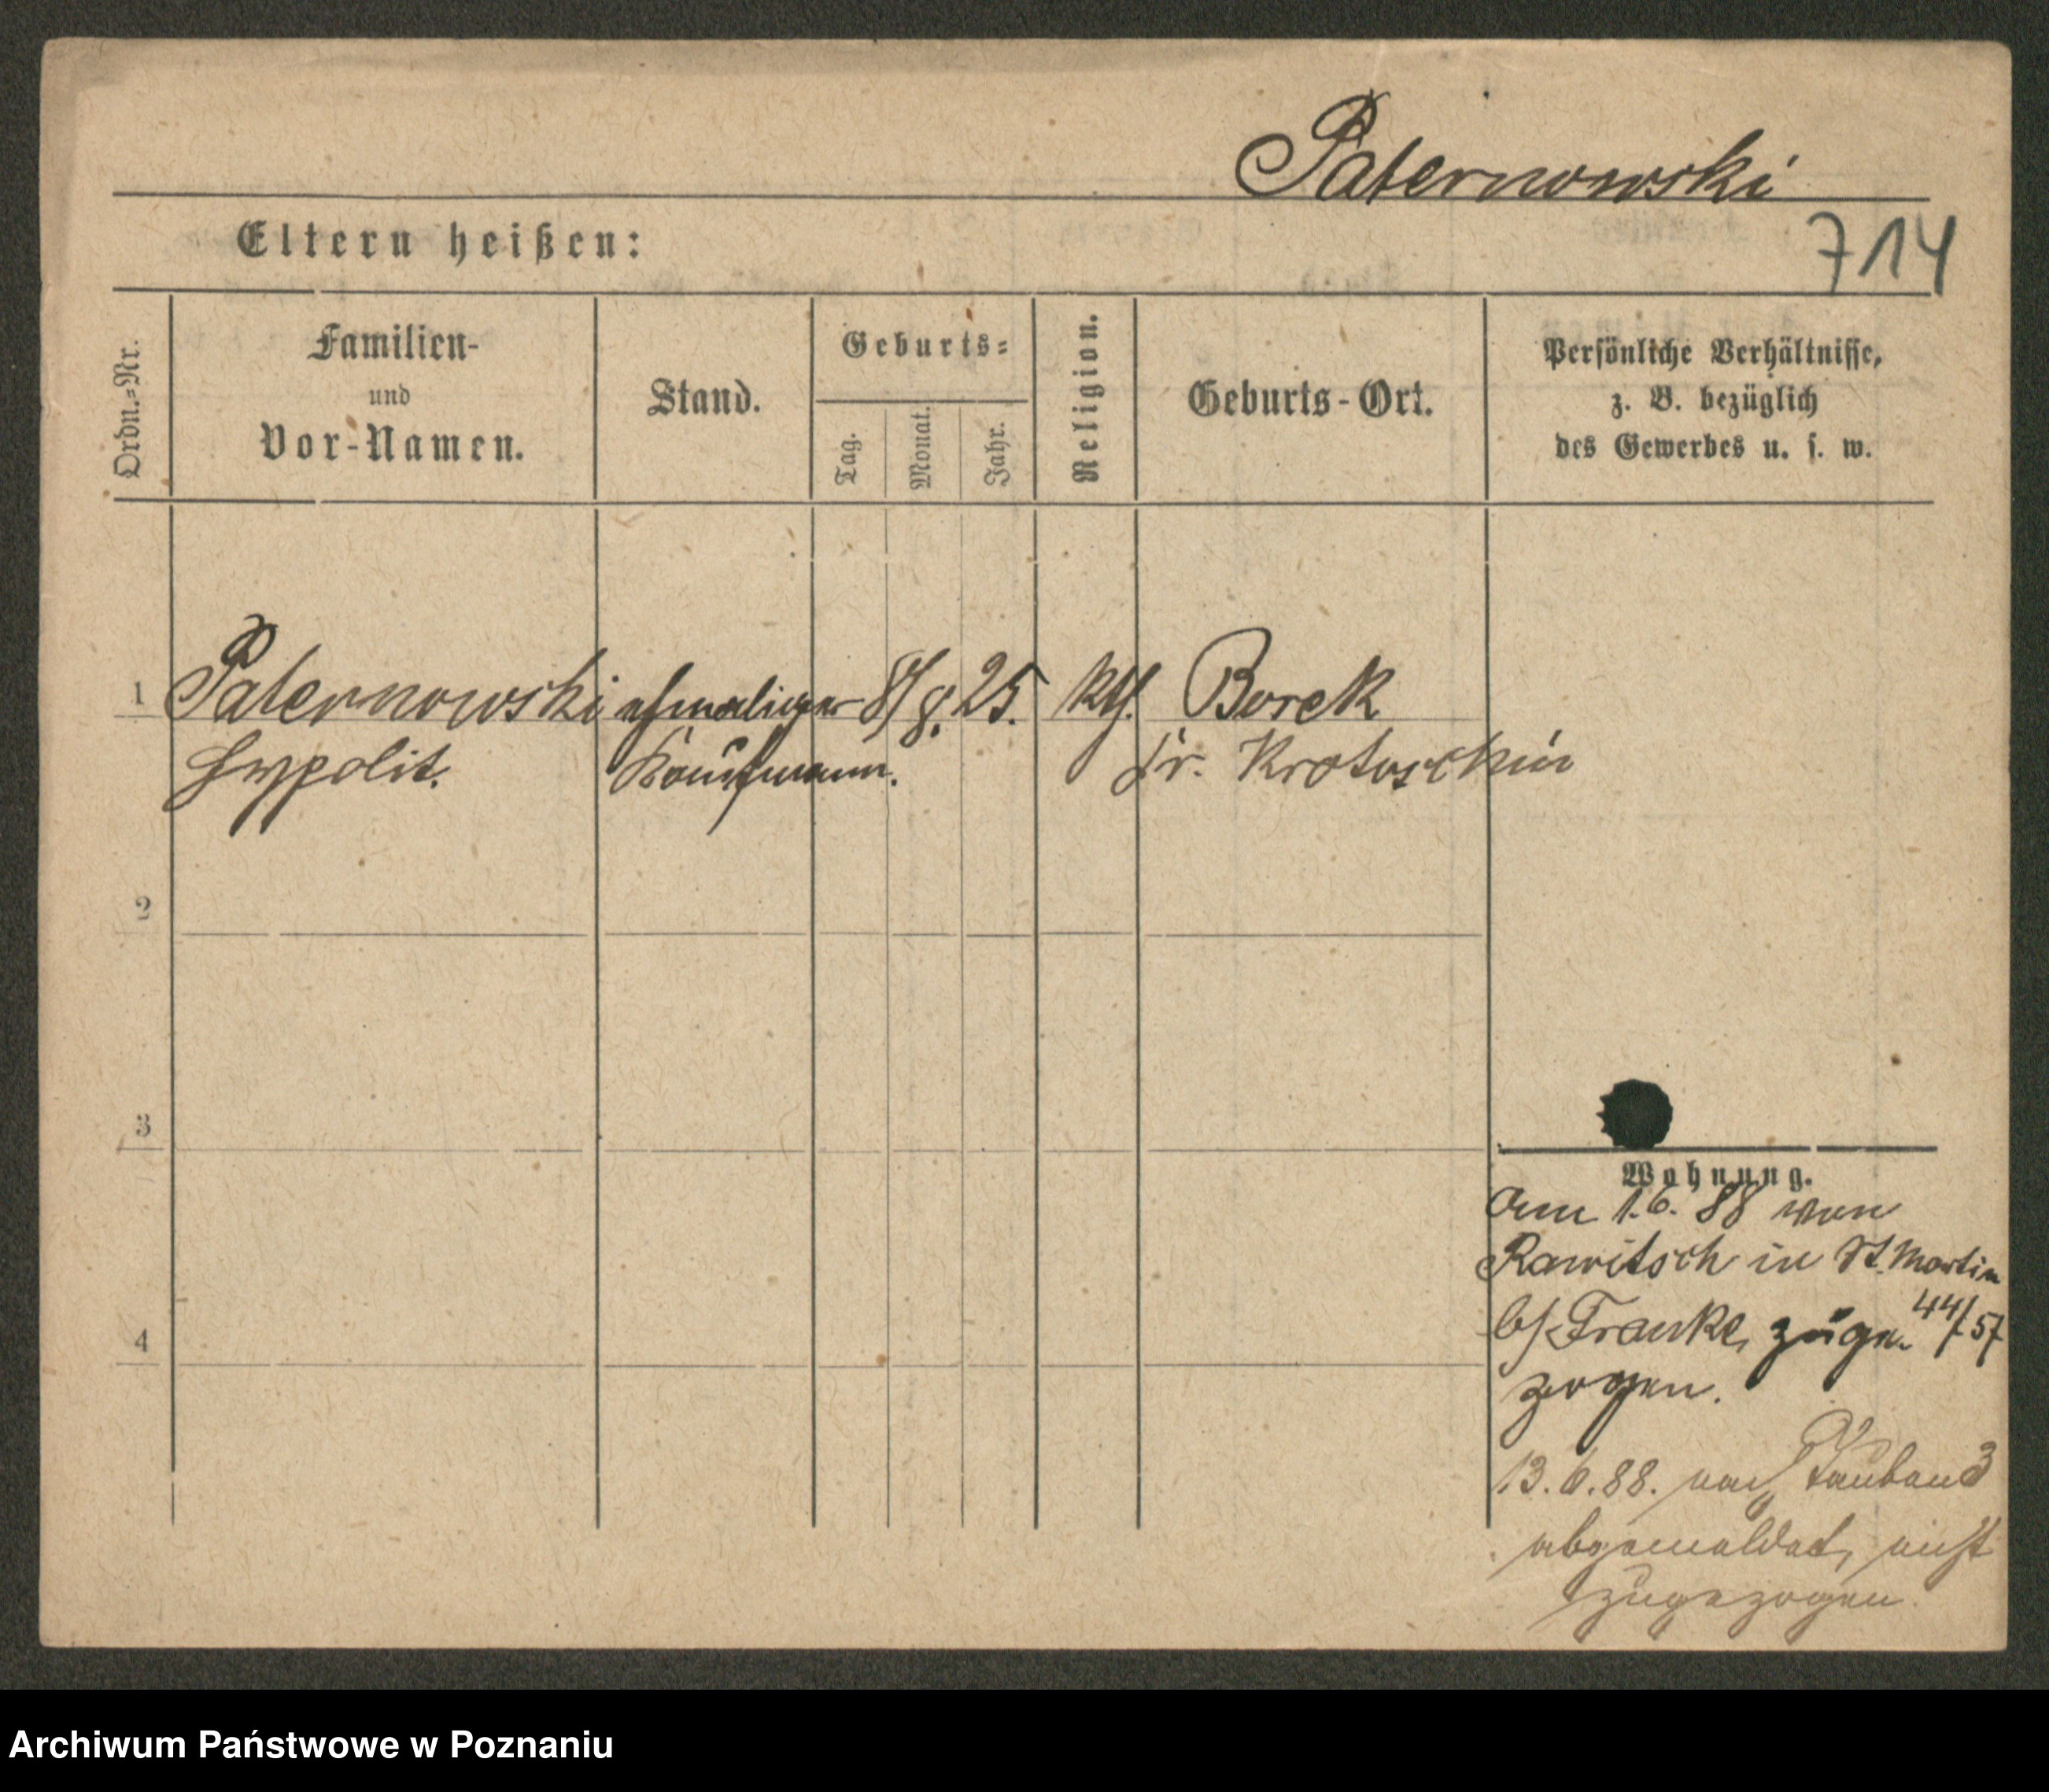 Paternowski
714
Eltern heißen:
Ordn.-Nr.
Familien-
und
Vor-Namen.
Stand.
Geburts-
Tag.
Monat.
Jahr.
Religion.
Geburts-Ort.
Persönliche Verhältnisse,
z. B. bezüglich
des Gewerbes u. s. w.
1 Paternowski ehmaliger 8/8. 25. kth. Borek
Hypolit. Kaufmann. Kr. Krotoschin
2
3
4
Wohnung.
Am 1.6.88 von
Rawitsch in St. Martin
b/ Franke, zuge- 44/57
zogen.
13.6.88. nach
abgemeldet, nicht
zugezogen.
Archiwum Państwowe w Poznaniu